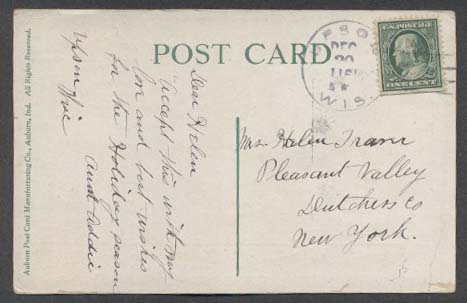 POST CARD
UPSON
DEC
20
WIS.
U.S. POSTAGE
ONE CENT
Auburn Post Card Manufacturing Co., Auburn, Ind. All Rights Reserved.
Upson Wis
Dear Helen
accept this with my
love and best wishes
for the Holiday season
Aunt Addie
Helen Traver
Pleasant Valley
Dutchess Co
New York.